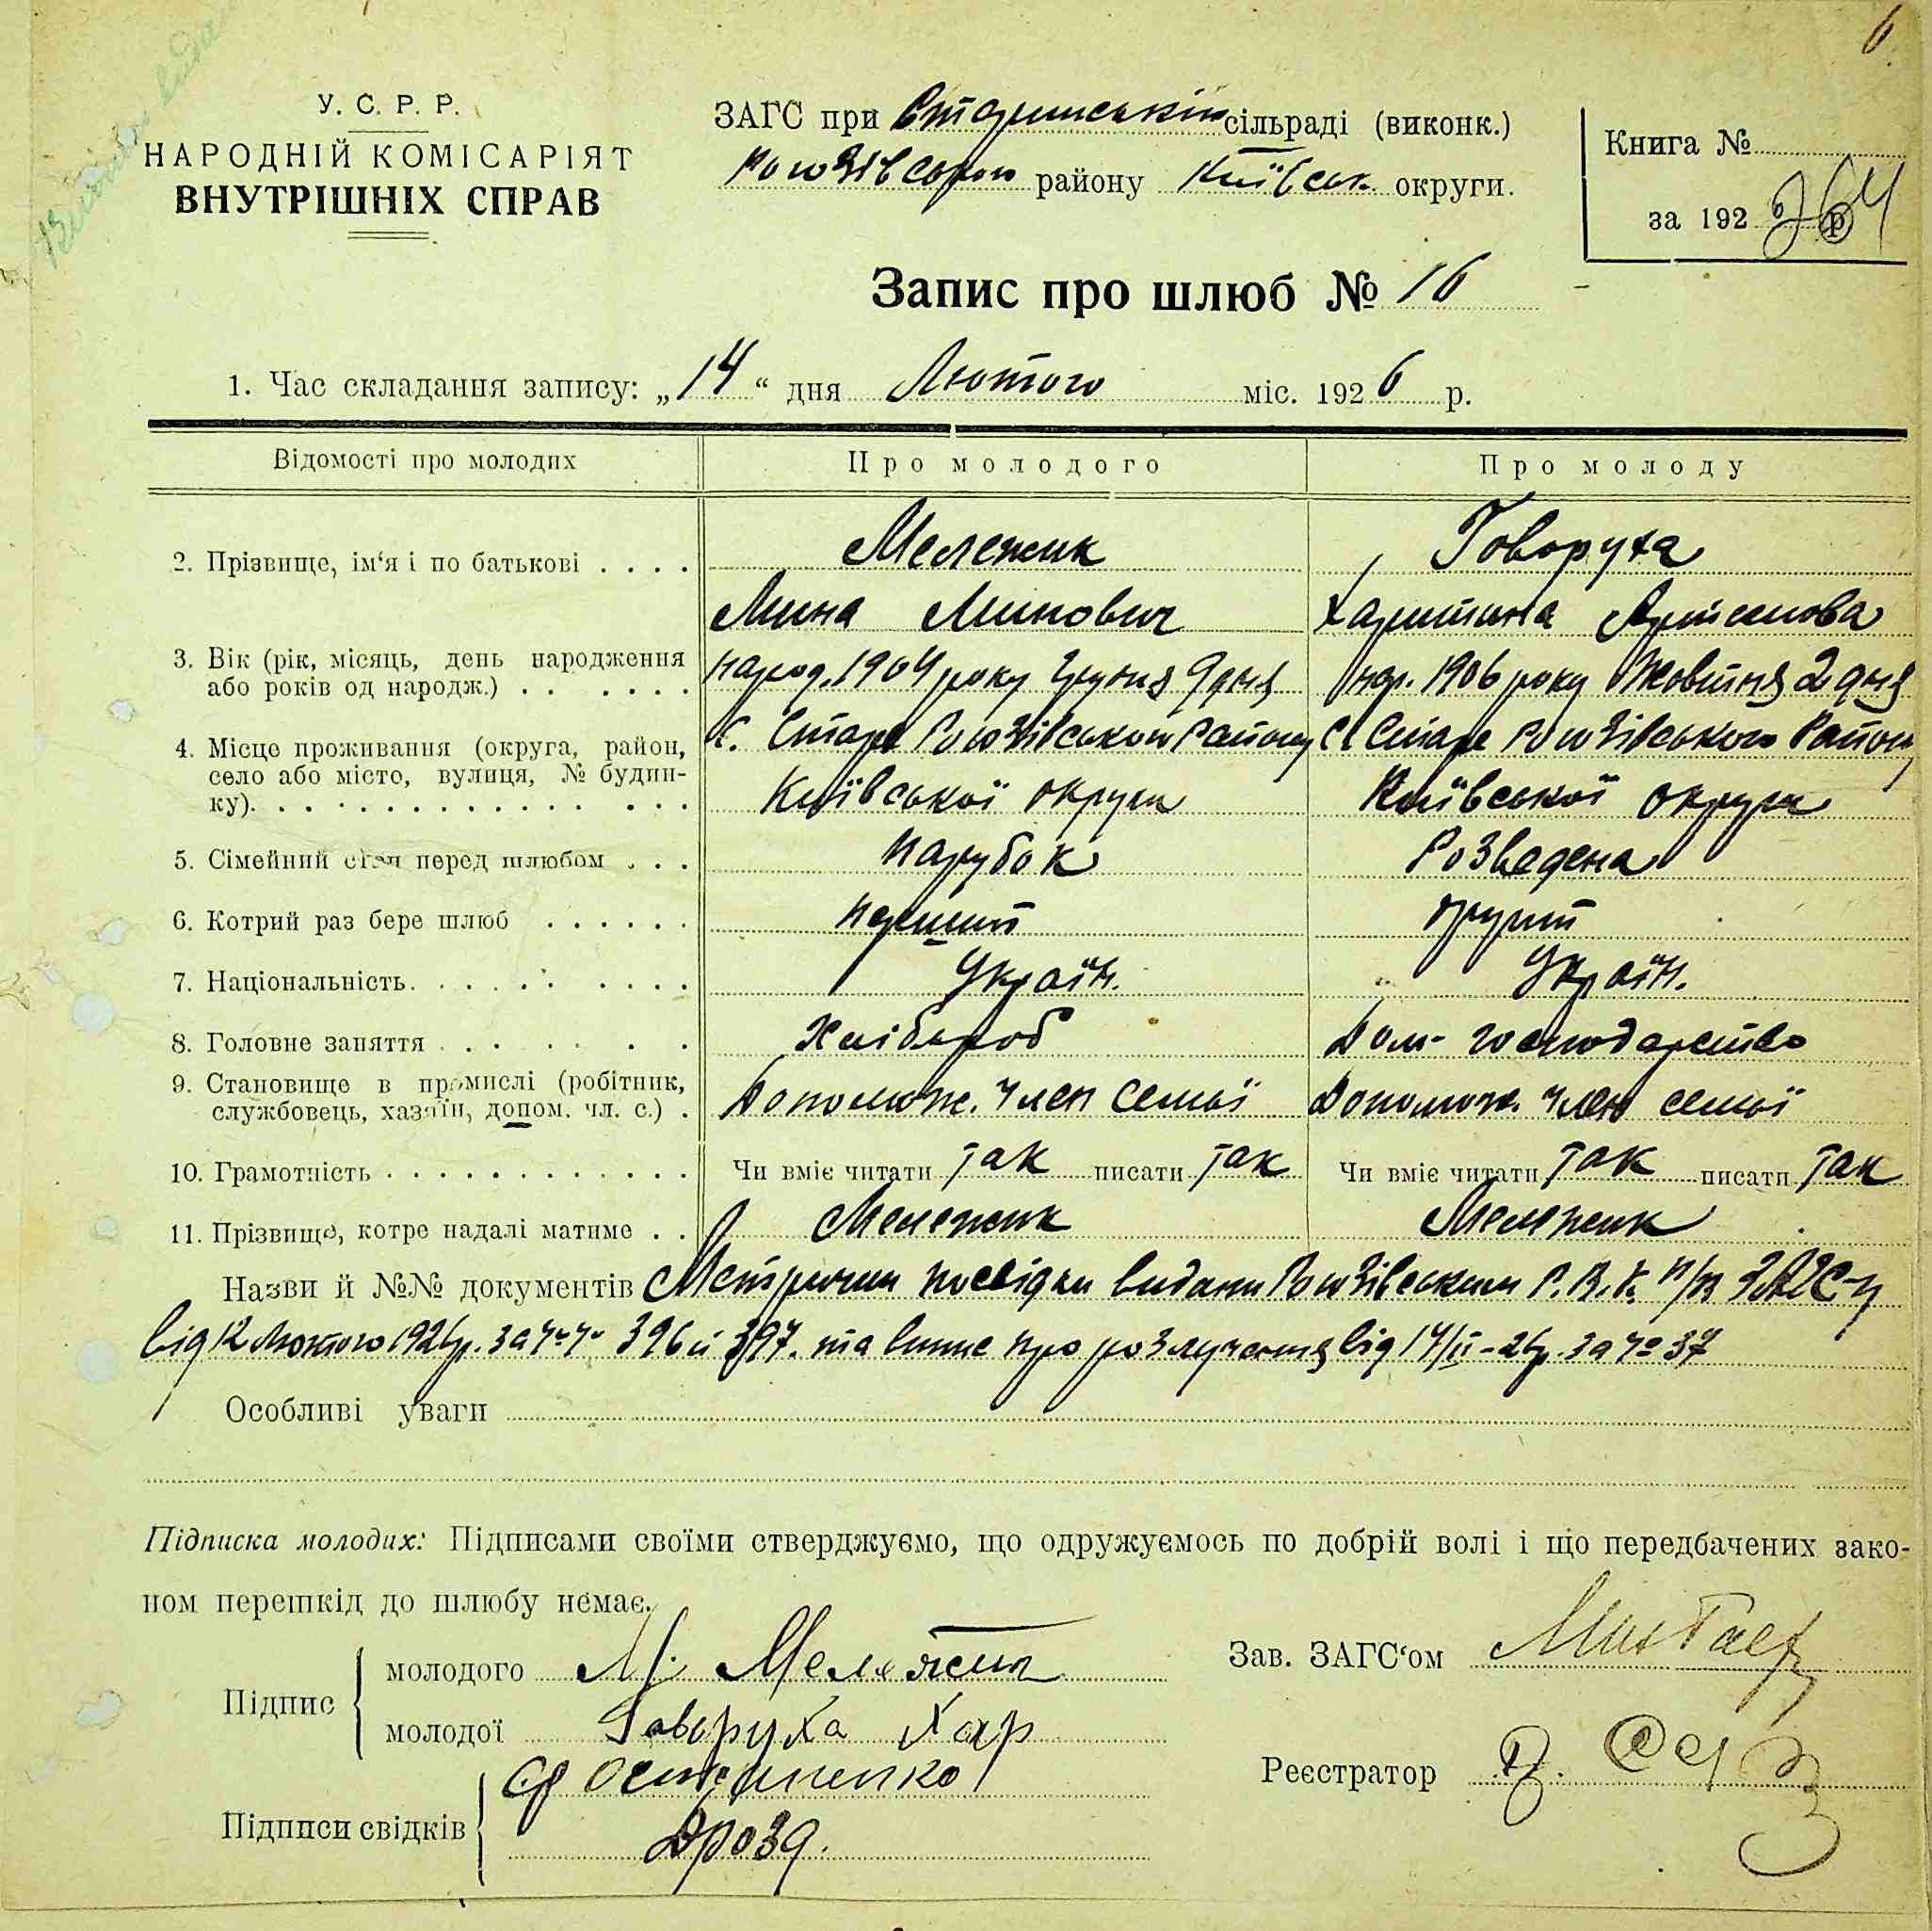 6.
У. С. Р. Р.
НАРОДНІЙ КОМІСАРІЯТ
ВНУТРІШНІХ СПРАВ
ЗАГС при Старинській сільраді (виконк.)
району Київськ округи.
Книга №
за 1926 р
Запис про шлюб № 16
1. Час складання запису: „14“ дня Лютого міс. 1926 р.
Відомості про молодих
Про молодого
Про молоду
2. Прізвище, ім‘я і по батькові
Мележик
Говоруха
Мина Минович
Харитина Артемова
3. Вік (рік, місяць, день народження
або років од народж.)
народ. 1904 року Грудня 9 дня
нар. 1906 року Жовтня 2 дня
4. Місце проживання (округа, район,
село або місто, вулиця, № будин-
ку).
с. Старе Рогозівського Району
с. Старе Рогозівського Району
Київської округи
Київської округи
5. Сімейний стан перед шлюбом
парубок
Розведена
6. Котрий раз бере шлюб
перший
другий
7. Національність
Україн.
Україн.
8. Головне заняття
Хлібороб
Дом- господарство
9. Становище в промислі (робітник,
службовець, хазяїн, допом. чл. с.)
Допомож. член семьї
Допомож. член семьї
10. Грамотність
Чи вміє читати так писати так
Чи вміє читати так писати так
11. Прізвище, котре надалі матиме
Мележик
Мележик
Назви й №№ документів Метричні посвідки видані Рогозівським Р.В.К. п/в ЗАГС-у
від 12 Лютого 1926р. за №№ 396 й 397. та випис про розлучення від 14/II-26р. за № 37
Особливі уваги
Підписка молодих: Підписами своїми стверджуємо, що одружуємось по добрій волі і що передбачених зако-
ном перешкід до шлюбу немає.
Підпис
молодого М. Мележик
молодої Говоруха Хар
Зав. ЗАГС‘ом
Реєстратор
Підписи свідків
Дрозд.